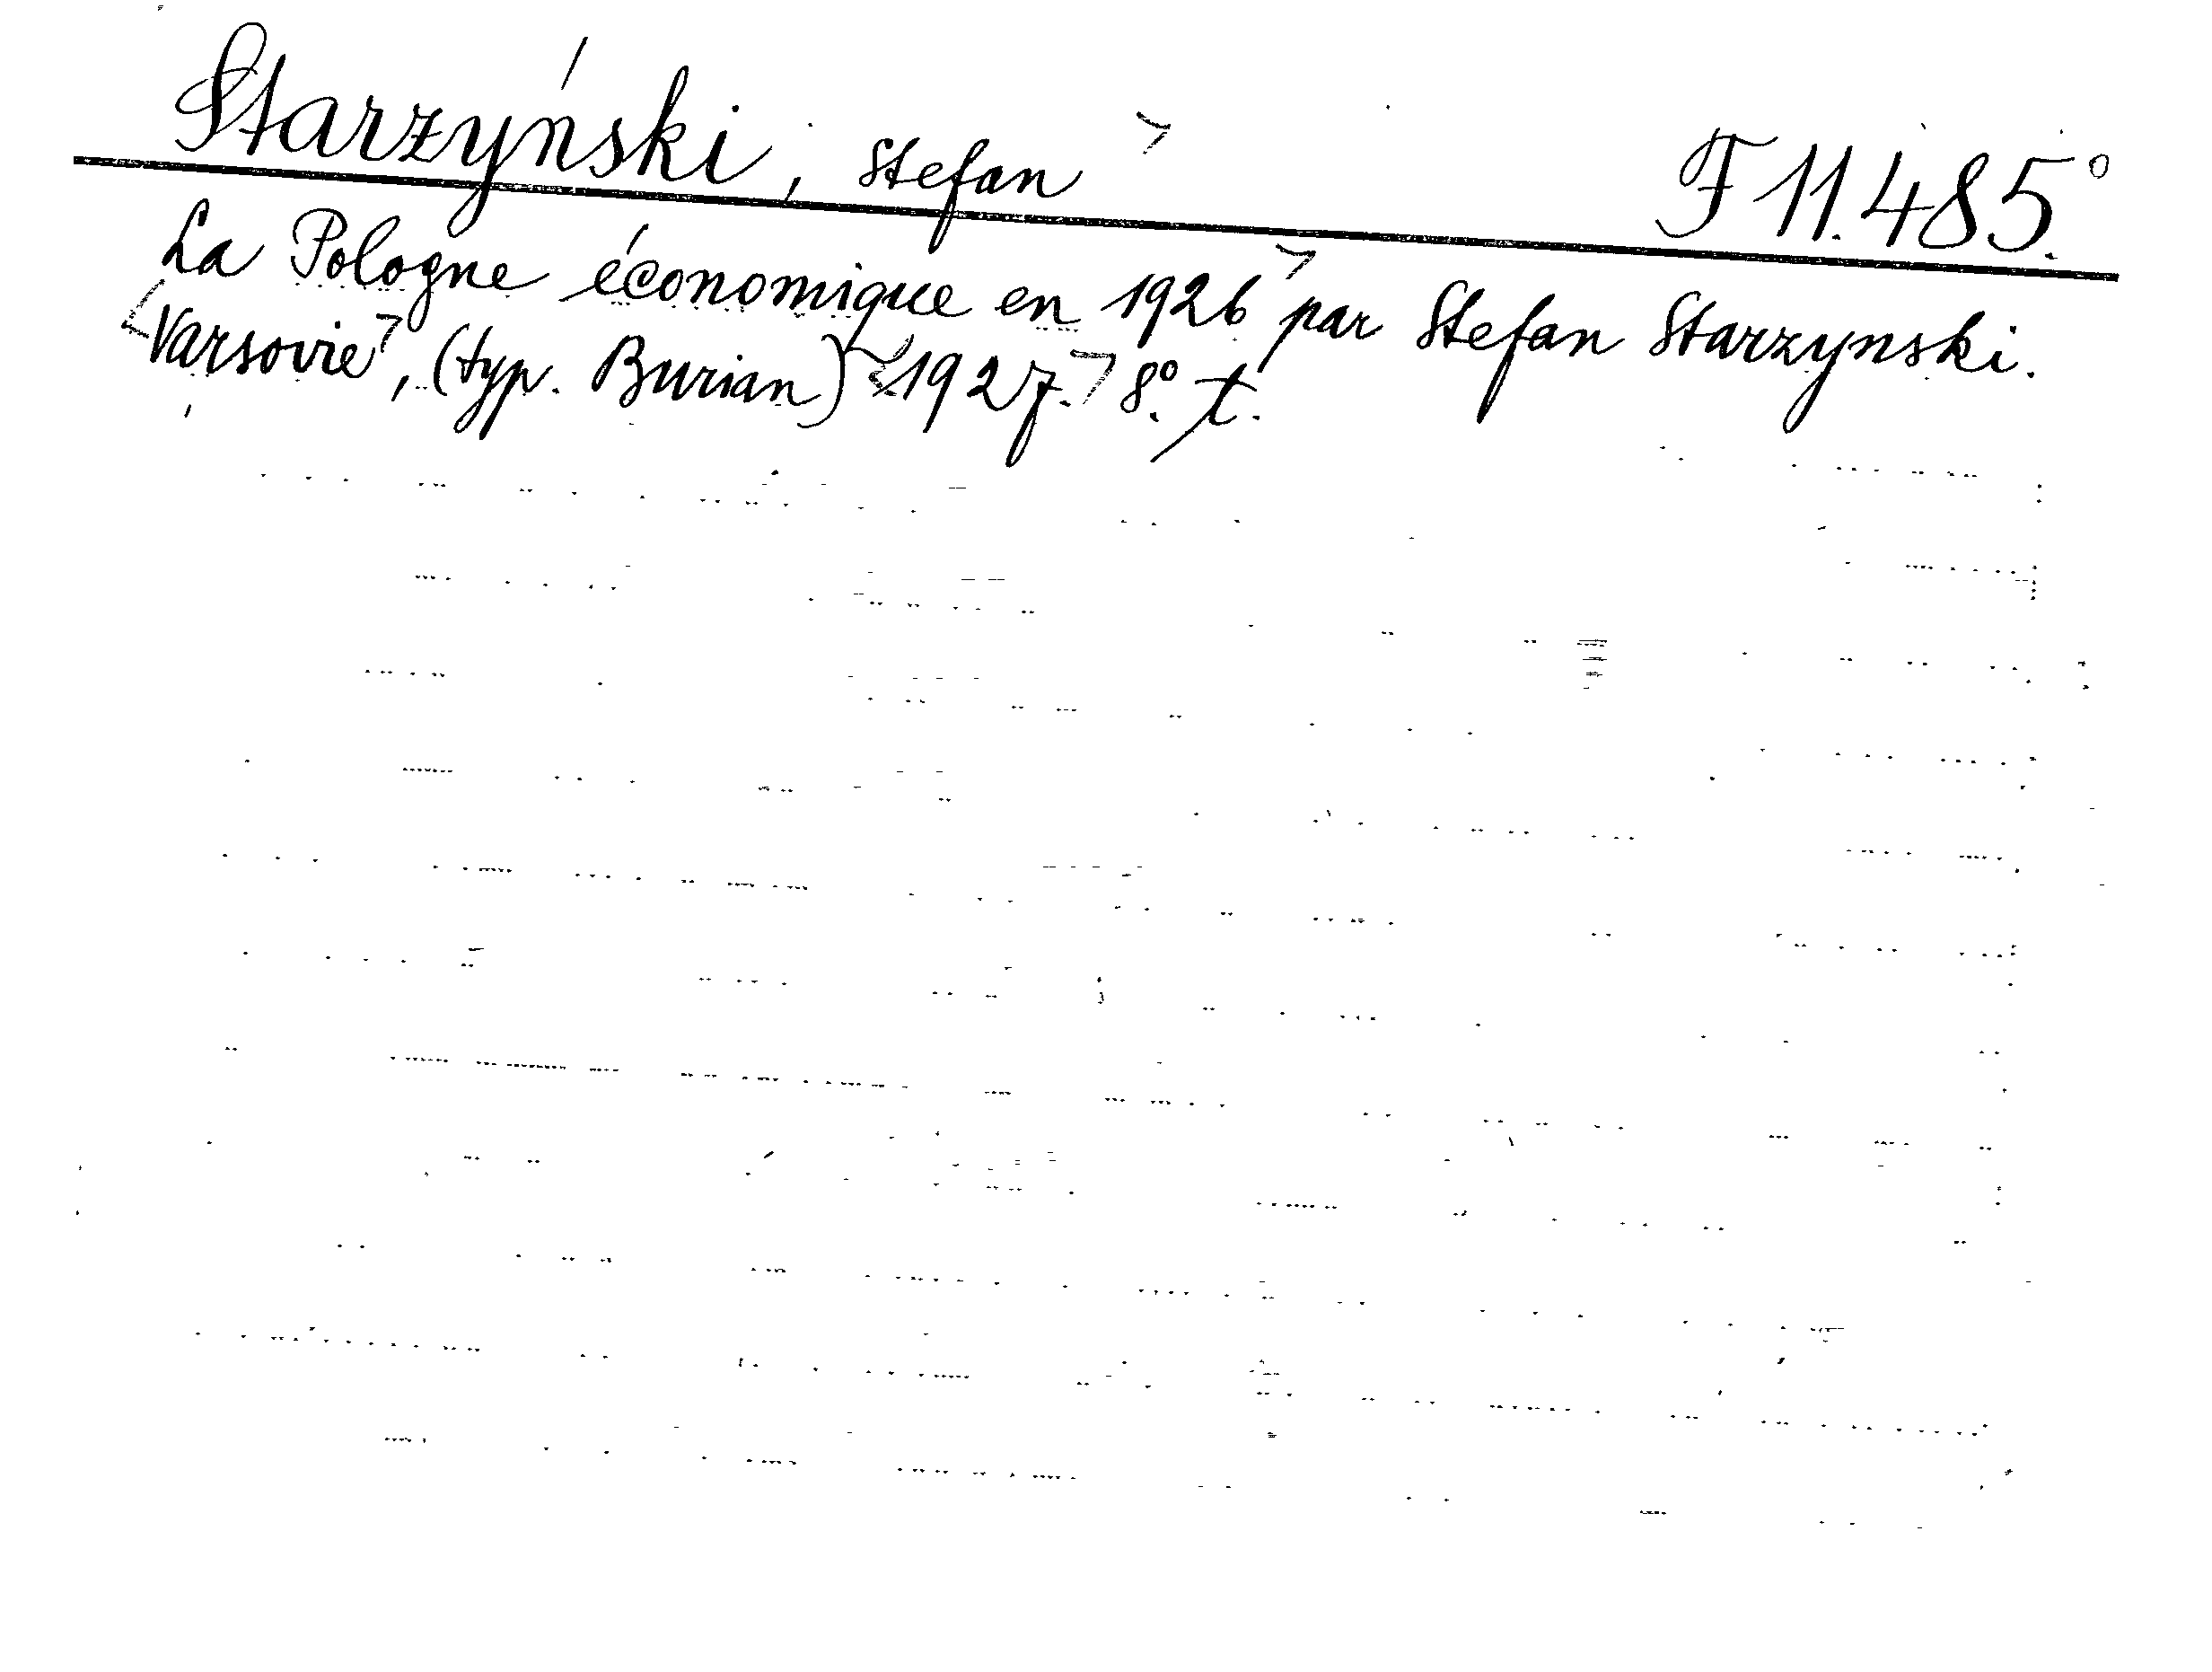 Starzyński, Stefan F 11.485.°
La Pologne économique en 1926 par Stefan Starzynski.
Varsovie, (typ. Burian) 1927. 8°. t.